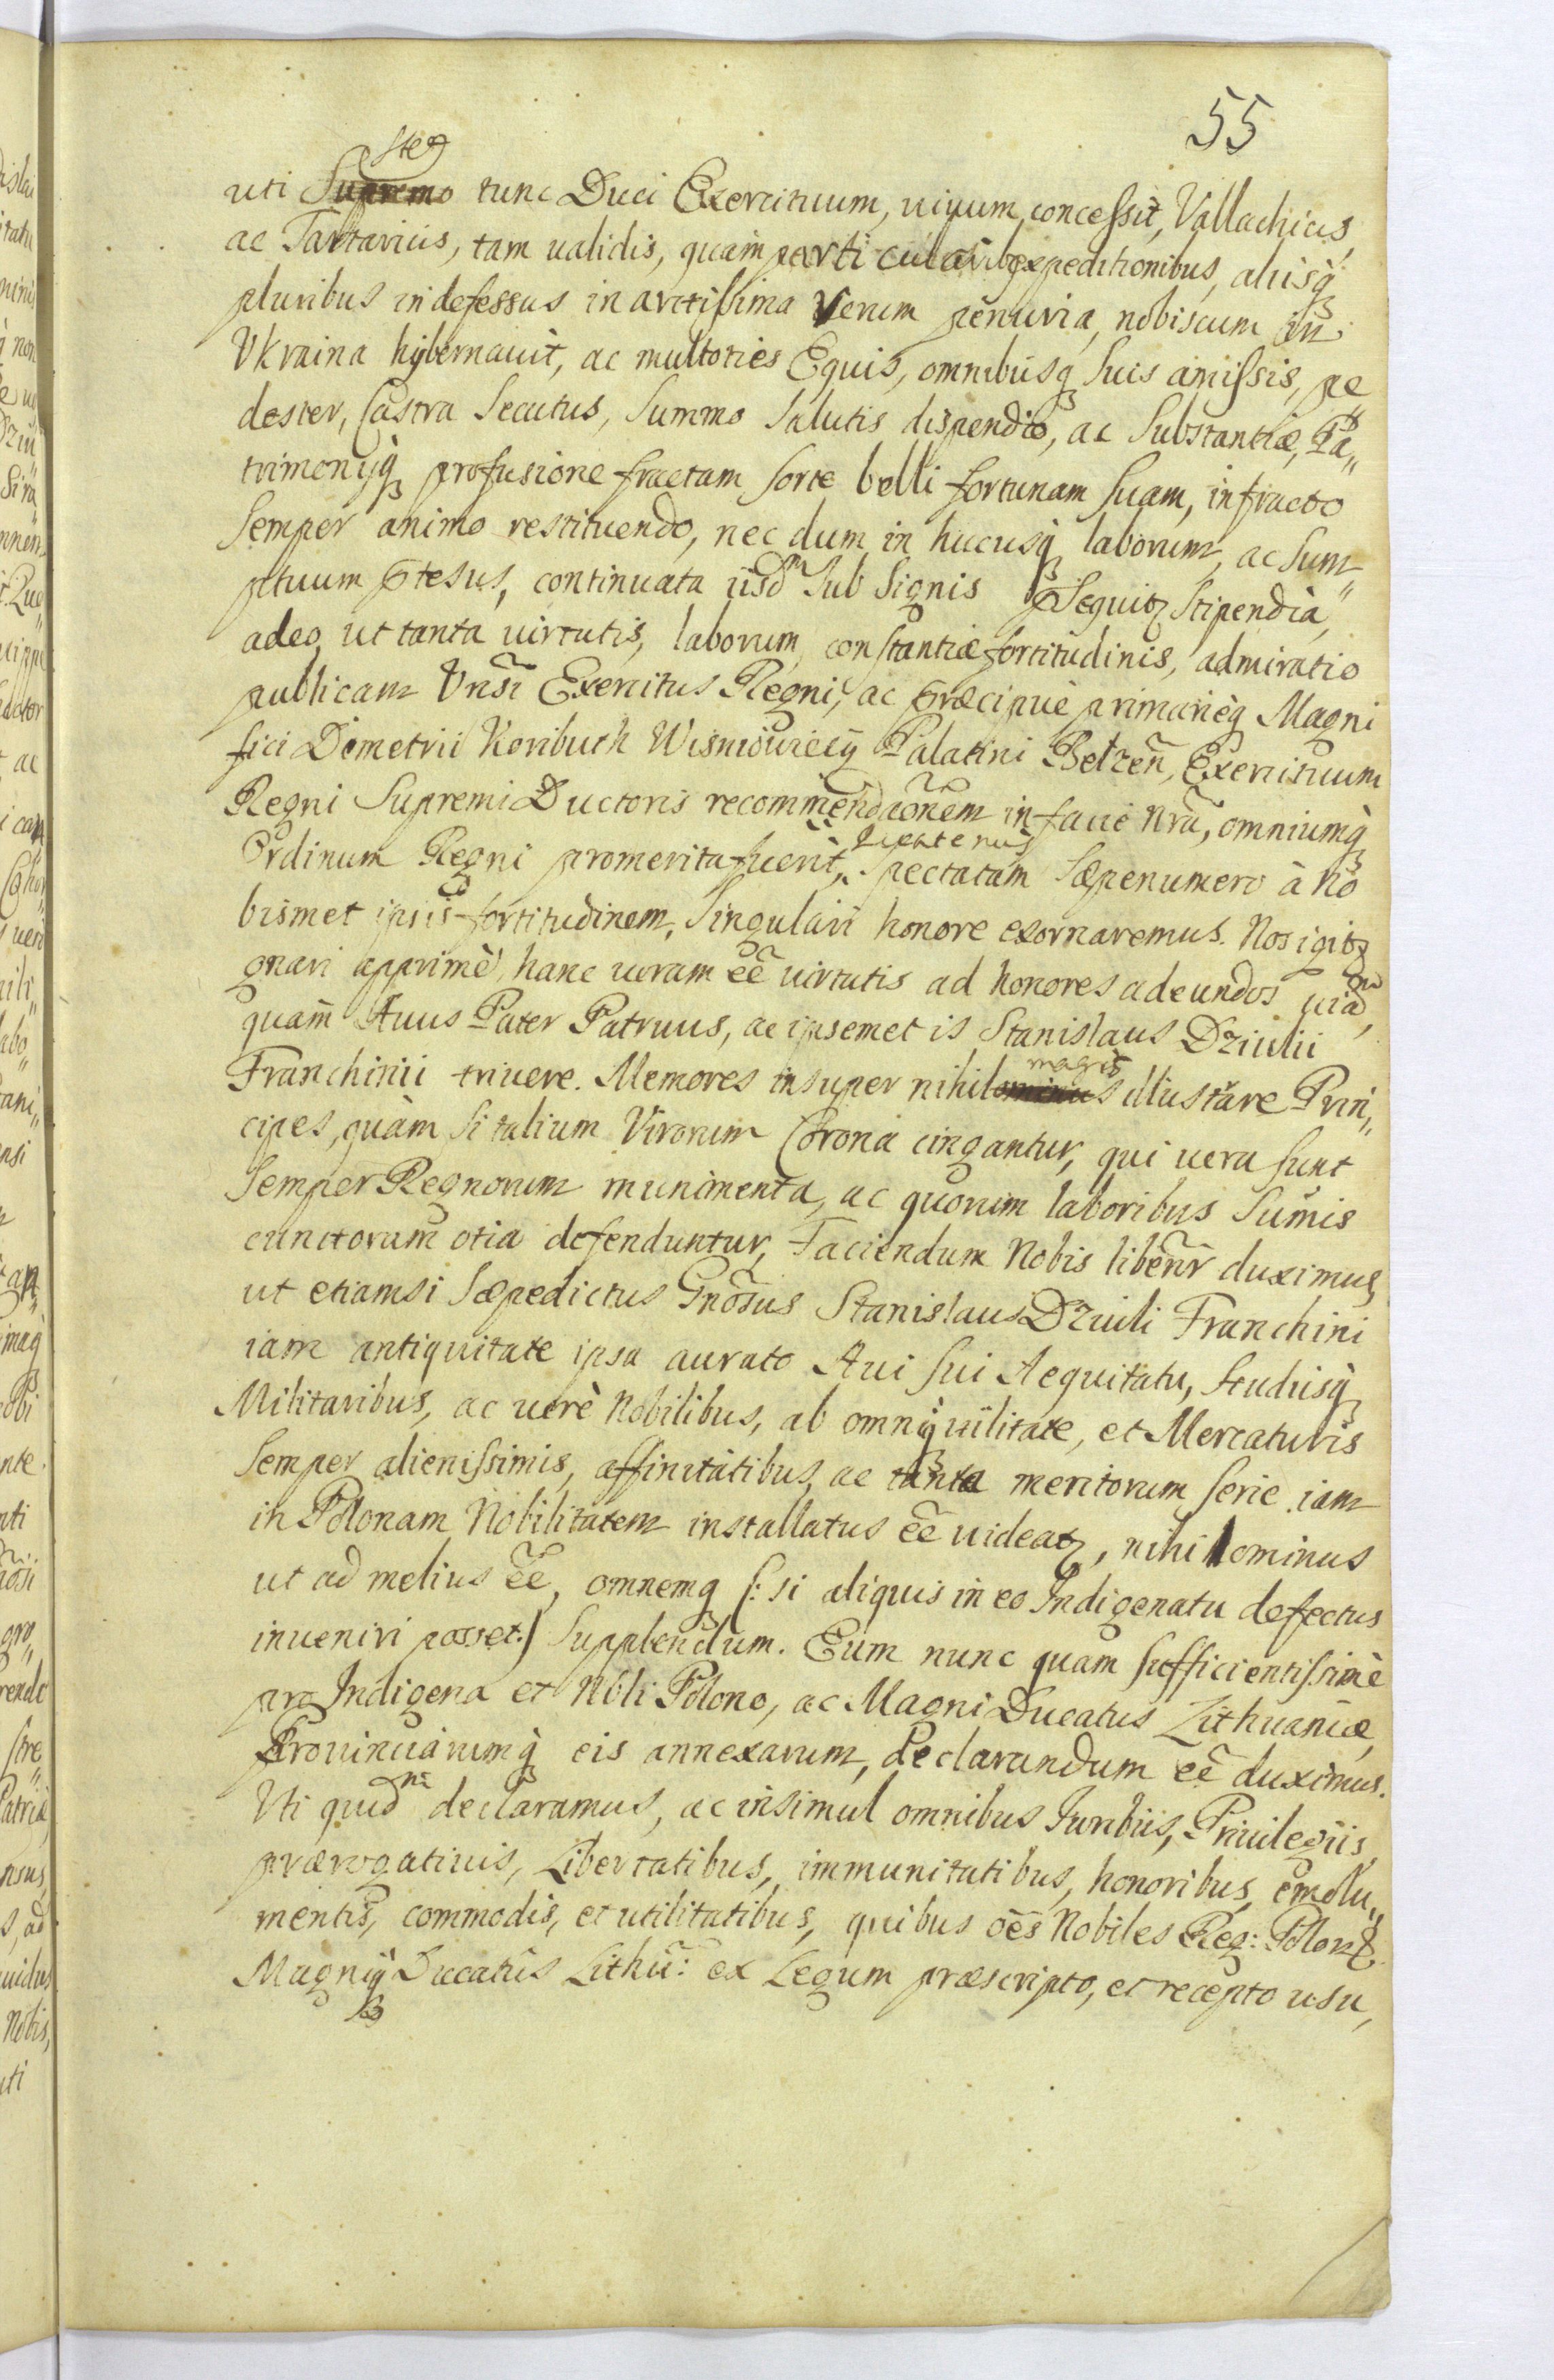 55
uti Supremo tunc Duci Exercituum, uiuum concessit, Vallachicis,
ac Tartaricis, tam ualidis, quam particularib expeditionibus, aliisq
pluribus indefessus in arctissima rerum penuria, nobiscum in
Vkraina hybernauit, ac multoties Equis, omnibusq suis amissis, pe
dester, Castra Secutus, Summo Salutis dispendio, ac Substantiæ, Pa„
trimonijq profusione fractam sorte belli fortunam suam, infracto
Semper animo restituendo, nec dum in hucusq laborum, ac Sum„
ptuum ptesus, continuata iisdm Sub Signis pSequitz Stipendia,
adeo, ut tanta uirtutis, laborum, constantiæ fortitudinis, admiratio
publicam Vnsi Exercitus Regni, ac præcipuè primarieq Magni
fici Demetrii Koributh Wisniowiecij Palatini Belzen, Exercituum
Regni Supremi Ductoris recommendaonem in facie nra, omniumq
Ordinum Regni promerita fuerit, quatenus spectatam Sæpenumero à No
bismet ipsis fortitudinem, Singulari honore exornaremus. Nos igitz
gnari apprimè, hanc ueram eẽ uirtutis ad honores adeundos uiam,
quam Auus Pater Patruus, ac ipsemet is Stanislaus Dziulii
Franchinii triuere. Memores insuper nihil magis illustrare Prin„
cipes, quàm si talium Virorum Corona cingantur, qui uera sunt
Semper Regnorum munimenta, ac quorum laboribus Sumis
cunctorum otia defenduntur, Faciendum Nobis libenr duximus,
ut etiamsi Sæpedictus Gnosus Stanislaus Dziuli Franchini
iam antiquitate ipsa aurato Aui sui Aequitatu, studiisq
Militaribus, ac uerè Nobilibus, ab omniq uilitate, et Mercaturis
Semper alienissimis, affinitatibus, ac tanta meritorum serie iam
in Polonam Nobilitatem installatus eẽ uideatz, nihilominus
ut ad melius eẽ, omnemq (: si aliquis in eo Indigenatu defectus
inueniri posset:) Supplendum. Eum nunc quam sufficientissimè
pro Indigena et Nbli Polono, ac Magni Ducatus Lithuaniæ,
Prouinciarumq eis annexarum, declarandum eẽ duximus.
Vti quidm declaramus, ac insimul omnibus Juribus, Priuilegiis,
prærogatiuis, Libertatibus, immunitatibus, honoribus, emolu„
mentis, commodis, et utilitatibus, quibus oẽs Nobiles Reg: Polon:
Magniq Ducatus Lithu: ex Legum præscripto, et recepto usu,